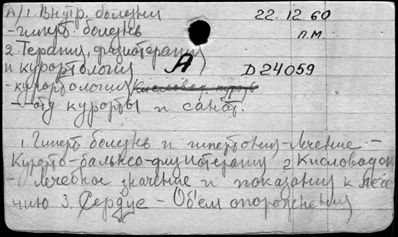 А/1. Внутр. болезни 22.12.60
- гиперт. болезнь П.М.
2. Терапия, физиотерапия
и курортология А D24059
- курортология / Кисловод. курорт
- отд курорты и санат.
1. Гиперт. болезнь и гипертония - лечение -
Курорто-бальнео-физиотерапия 2 Кисловодск
- Лечебное значение и показания к лече-
нию 3. Сердце - Объем опорожнения